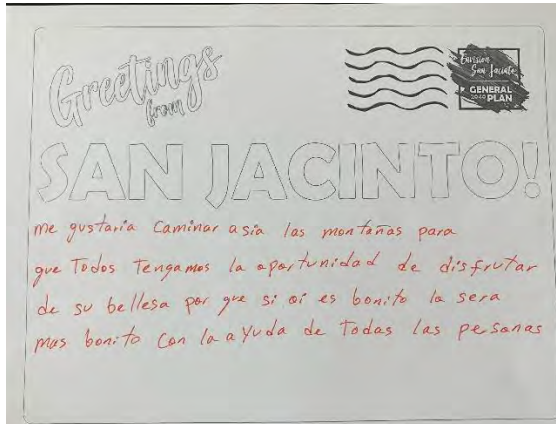 Greetings
from
Envision
San Jacinto
GENERAL
2040 PLAN
SAN JACINTO!
me gustaria Caminar asia las montañas para
que Todos Tengamos la oportunidad de disfrutar
de su bellesa por que si oi es bonito lo sera
mas bonito con la ayuda de Todas las personas